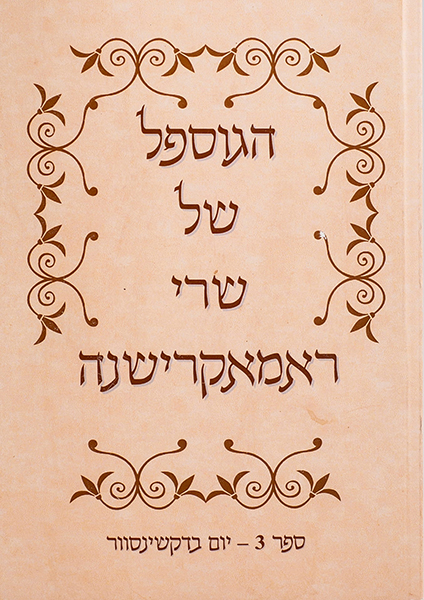 הגוספל
של
שרי
ראמאקרישנה
ספר 3 – יום בדקשינסוור